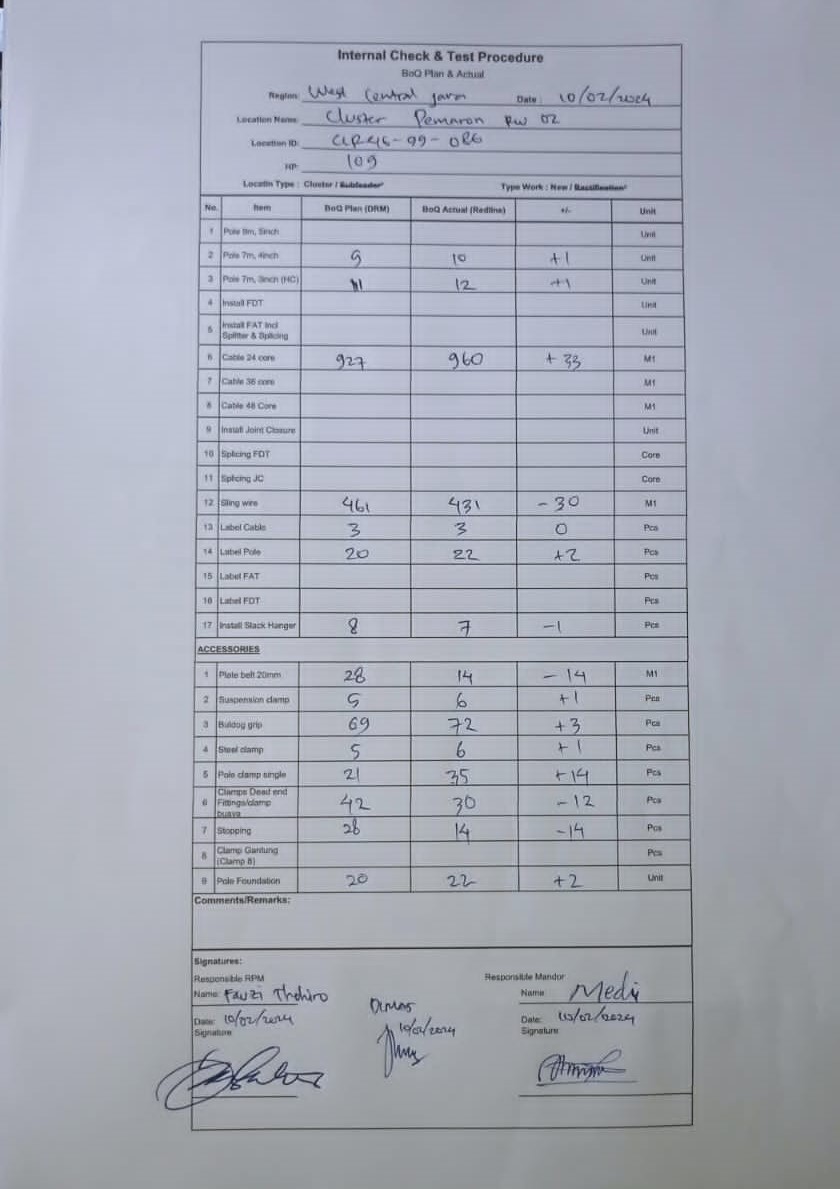 Internal Check & Test Procedure
BoQ Plan & Actual
Region: West Central Java Date : 10/02/2024
Location Name: Cluster Pemaron RW 02
Location ID:
HP: 109
Locatin Type : Cluster / Subfeeder* Type Work : New /
No. Item BoQ Plan (DRM) BoQ Actual (Redline) +/- Unit
1 Pole 9m, 5inch Unit
2 Pole 7m, 4inch 9 10 +1 Unit
3 Pole 7m, 3inch (HC) 11 12 +1 Unit
4 Install FDT Unit
5 Install FAT Incl Splitter & Splicing Unit
6 Cable 24 core 927 960 + 33 M1
7 Cable 36 core M1
8 Cable 48 Core M1
9 Install Joint Closure Unit
10 Splicing FDT Core
11 Splicing JC Core
12 Sling wire 461 431 - 30 M1
13 Label Cable 3 3 0 Pcs
14 Label Pole 20 22 +2 Pcs
15 Label FAT Pcs
16 Label FDT Pcs
17 Install Slack Hanger 8 7 -1 Pcs
ACCESSORIES
1 Plate belt 20mm 28 14 - 14 M1
2 Suspension clamp 5 6 +1 Pcs
3 Buldog grip 69 72 +3 Pcs
4 Steel clamp 5 6 +1 Pcs
5 Pole clamp single 21 35 +14 Pcs
6 Clamps Dead end Fittings/clamp buaya 42 30 - 12 Pcs
7 Stopping 28 14 -14 Pcs
8 Clamp Gantung (Clamp B) Pcs
9 Pole Foundation 20 22 +2 Unit
Comments/Remarks:
Signatures:
Responsible RPM Responsible Mandor
Name: Fauzi Name: Medi
Date: 10/02/2024 10/02/2024 Date: 10/02/2024
Signature Signature